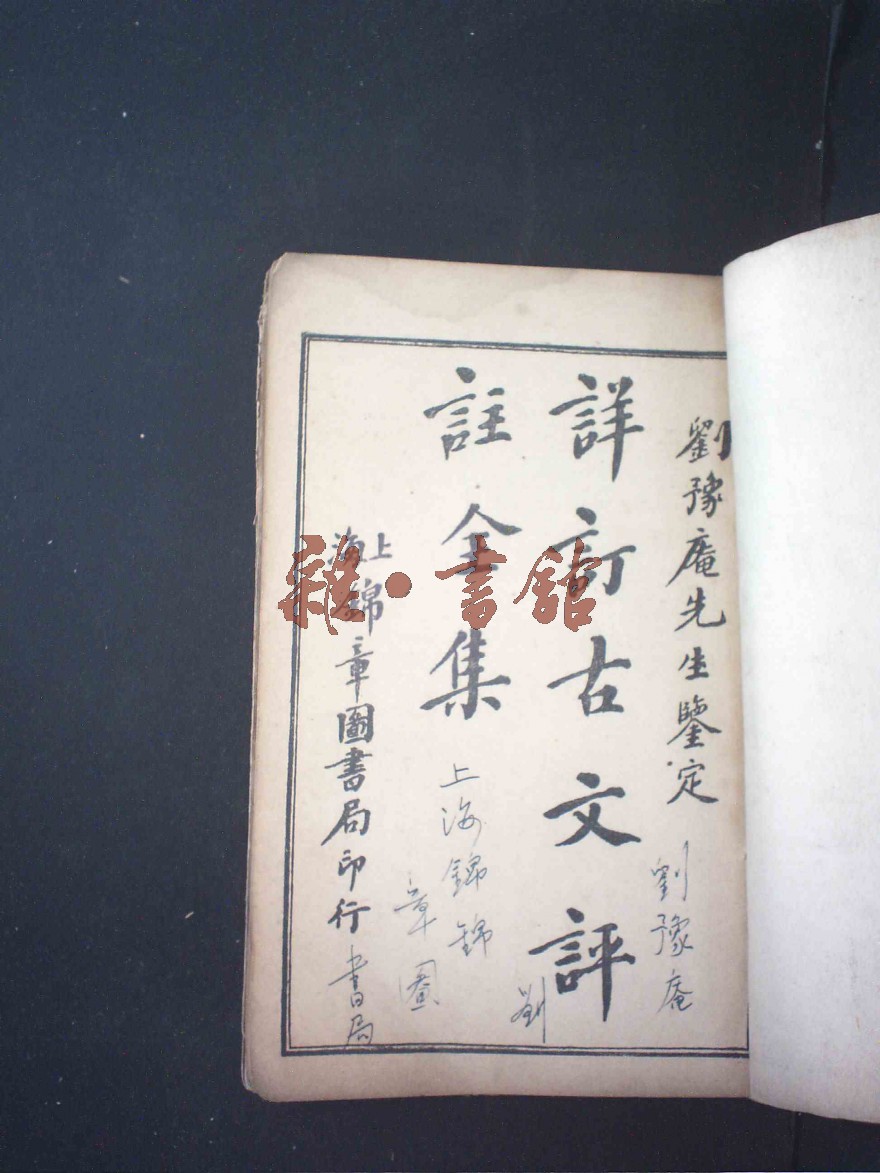 劉豫庵先生鑒定
劉豫庵
詳訂古文評
劉
註全集
上海錦錦
章圖
上海錦章圖書局印行
書局
雜·書館